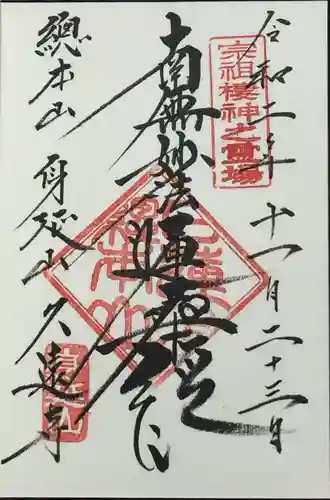 令和二年 十一月二十三日
宗祖棲神之霊場
南無妙法蓮華経
總本山 身延山久遠寺